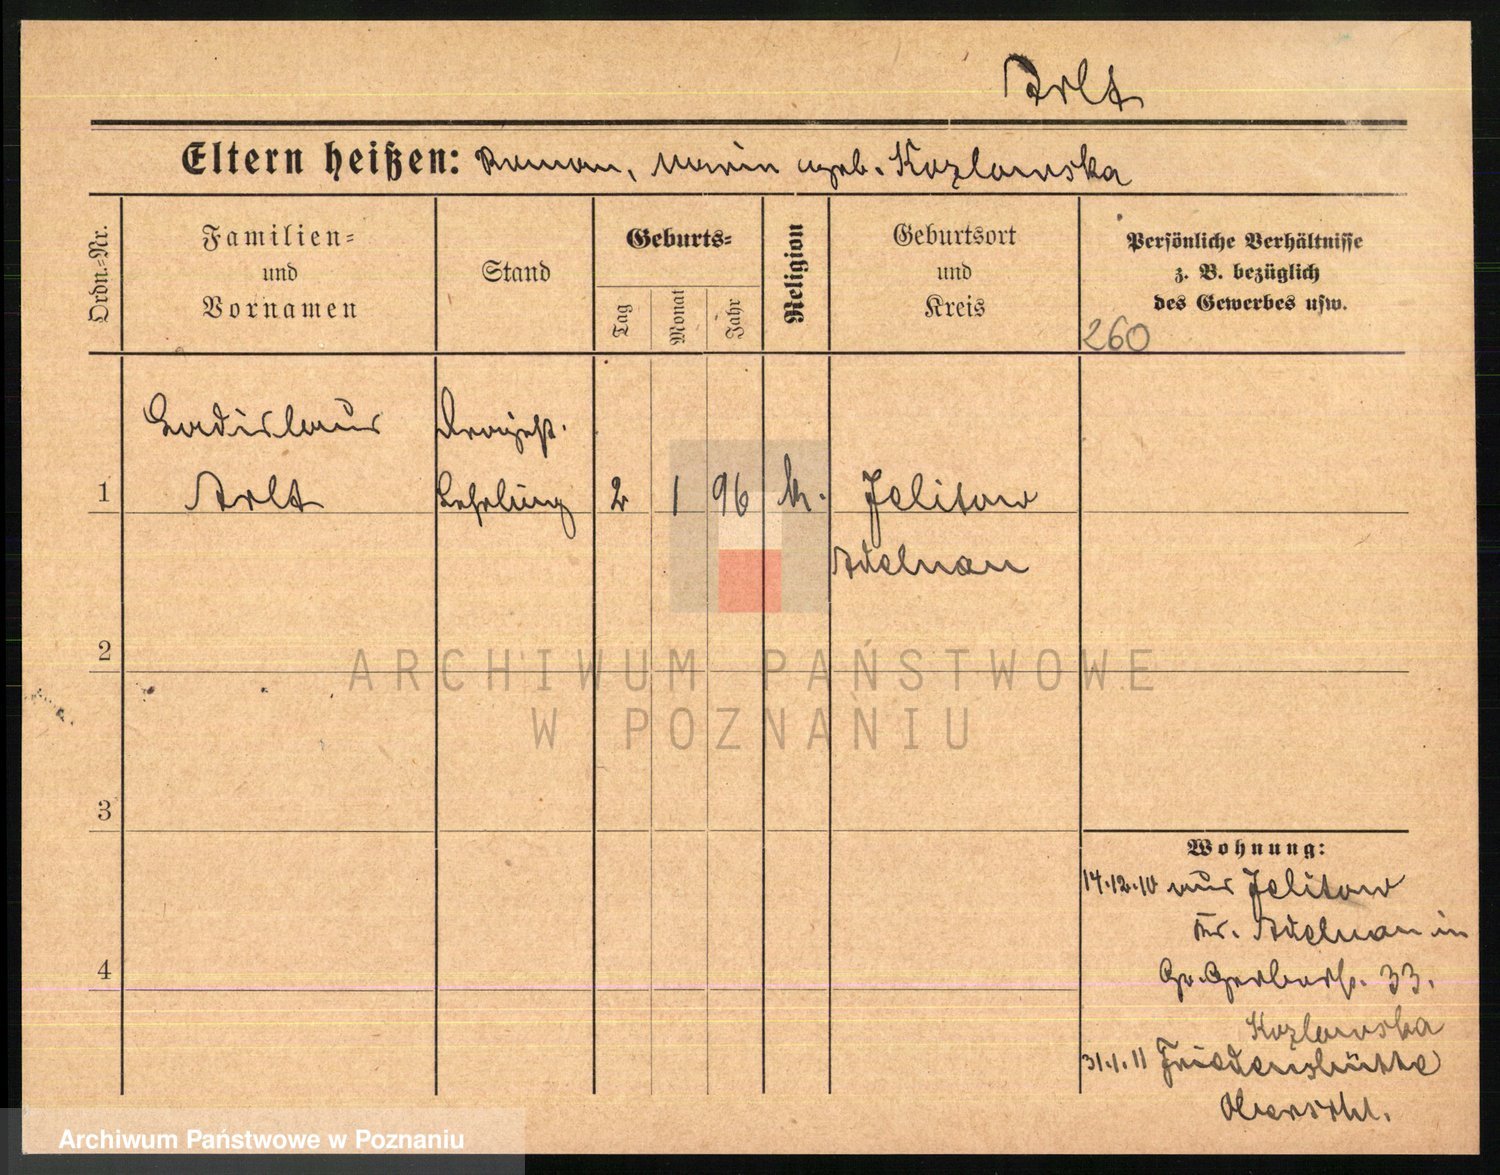 Arlt
Eltern heißen: Roman, Marie geb. Kozlowska
Ordn.=Nr.
Familien=
und
Vornamen
Stand
Geburts=
Tag
Monat
Jahr
Religion
Geburtsort
und
Kreis
Persönliche Verhältnisse
z. B. bezüglich
des Gewerbes usw.
260
Ladislaus
Arlt
1
Drogist.
Lehrling
2
1
96
k.
Jelitow
Adelnau
2
3
4
Wohnung:
14.12.10 aus Jelitow
Kr. Adelnau in
Gr. Gerberst. 33.
Kozlowska
31.1.11 Friedenshütte
Oberschl.
ARCHIWUM PAŃSTWOWE
W POZNANIU
Archiwum Państwowe w Poznaniu